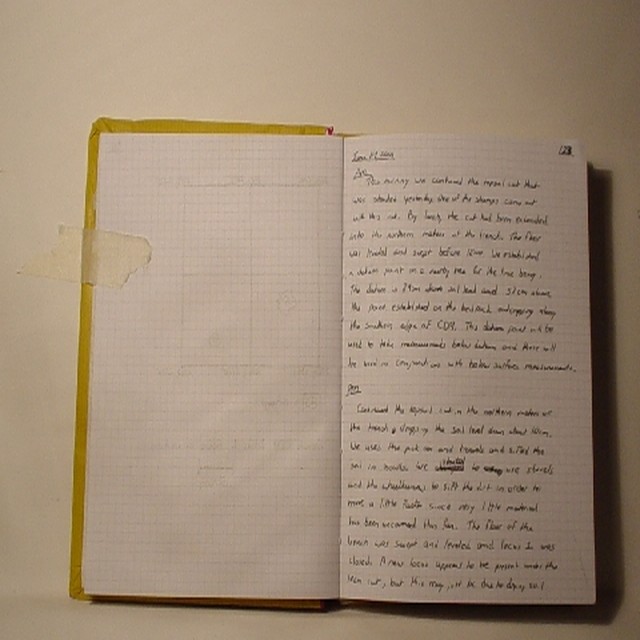 128
This morning we continued the topsoil cut that
was started yesterday. One of the stumps came out
with this cut. By lunch the cut had been extended
into the northern meters of the trench. The floor
was leveled and swept before lunch. We established
a datum point on a nearby tree for the time being.
The datum is above soil level and 51cm above
the point established on the bedrock outcropping along
the southern edge of CD9. This datum point will be
used to take measurements below datum and these will
be used in conjunction with below surface measurements.
pm
Continued the topsoil cut in the northern meters of
the trench, dropping the soil level down about 10cm.
We used the pick and trowels and sifted the
soil in
and the wheelbarrows to sift the dirt in order to
move a little faster since very little material
has been uncovered thus far. The floor of the
trench was swept and leveled and locus 1 was
closed. A new locus appears to be present under the
cut, but this may just be due to damp soil